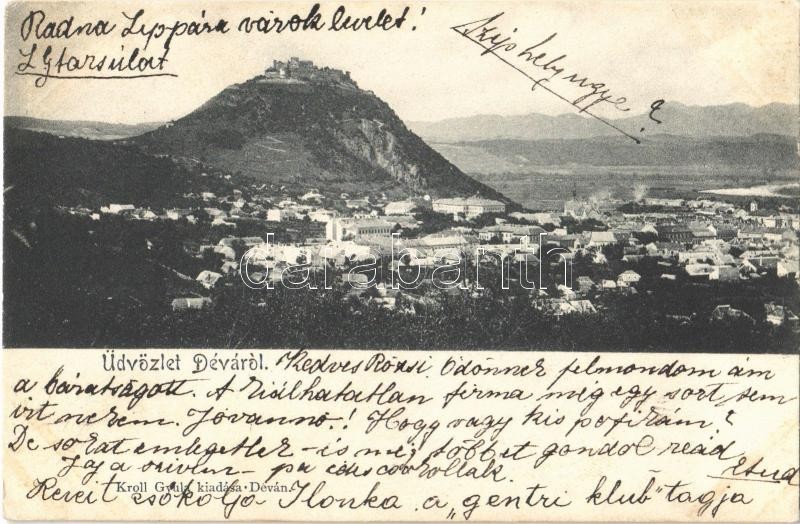 Radna Lippára várok levelet!
Szép hely ugye?
darabanth
Üdvözlet Déváról. Kedves Rózsi. Ödönnek felmondom ám
a barátságott. A kiálhatatlan firma még egy sort sem
irt nekem. Jóvanno! Hogy vagy kis pofikám?
De sokat emlegetlek - is még többet gondol reád
Jaj a szivem - pá csókollak.
Kroll Gyula kiadása · Déván.
Kezeit csókolja Ilonka a „gentri klub" tagja